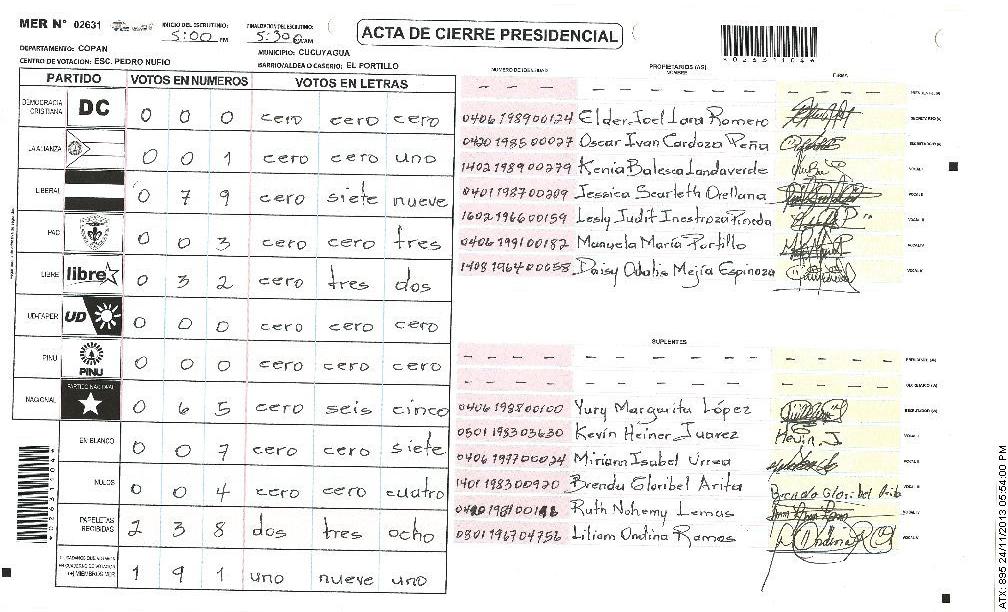 MER N° 02631
INICIO DEL ESCRUTINIO: 5:00 PM
FINALIZACION DEL ESCRUTINIO: 5:30 PM
ACTA DE CIERRE PRESIDENCIAL
DEPARTAMENTO: COPAN
MUNICIPIO: CUCUYAGUA
CENTRO DE VOTACION: ESC. PEDRO NUFIO
BARRIO/ALDEA O CASERIO: EL PORTILLO
PARTIDO VOTOS EN NUMEROS VOTOS EN LETRAS
DEMOCRACIA CRISTIANA DC 0 0 0 cero cero cero
LA ALIANZA 0 0 1 cero cero uno
LIBERAL 0 7 9 cero siete nueve
PAC 0 0 3 cero cero tres
LIBRE libre 0 3 2 cero tres dos
UD-FAPER UD 0 0 0 cero cero cero
PINU PINU 0 0 0 cero cero cero
NACIONAL PARTIDO NACIONAL 0 6 5 cero seis cinco
EN BLANCO 0 0 7 cero cero siete
NULOS 0 0 4 cero cero cuatro
PAPELETAS RECIBIDAS 2 3 8 dos tres ocho
CIUDADANOS QUE VOTARON (+) MIEMBROS MER 1 9 1 uno nueve uno
NUMERO DE IDENTIDAD PROPIETARIOS (AS) NOMBRE FIRMA
— — — — — — — — — — — —
0406198900124 Elder Joel Lara Romero SECRETARIO (A)
0420198500027 Oscar Ivan Cardoza Peña
1402198900279 Kenia Balesca Landaverde
0401198700209 Jessica Scarleth Orellana
1602196600159 Lesly Judit Inestroza Pineda
0406199100182 Manuela María Portillo
1408196400058 Daisy Odalis Mejía Espinoza
SUPLENTES
— — — — — — — — — — — —
— — — — — — — — — — — —
0406198800100 Yury Margarita López
0501198303630 Kevin Heiner Juarez Kevin J
0406197700024 Miriann Isabel Urrea
1401198300920 Brenda Gloribel Arita Brenda Gloribel Arita
Ruth Nohemy Lemas
0801196704756 Liliam Ondina Ramos
02631104
ATX: 895 24/11/2013 05:54:00 PM